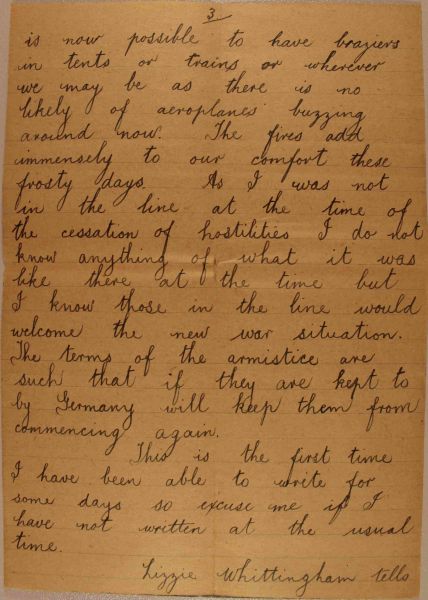 3
is now possible to have braziers
in tents or trains or wherever
we may be as there is no
likely of aeroplanes buzzing
around now. The fires add
immensely to our comfort these
frosty days. As I was not
in the line at the time of
the cessation of hostilities I do not
know anything of what it was
like there at the time but
I know those in the line would
welcome the new war situation.
The terms of the armistice are
such that if they are kept to
by Germany will keep them from
commencing again.
This is the first time
I have been able to write for
some days so excuse me if I
have not written at the usual
time.
Lizzie Whittingham tells